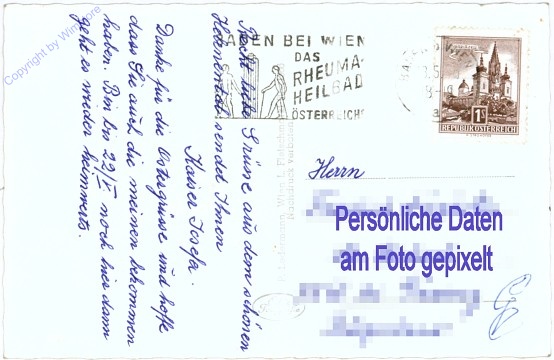 Recht liebe Grüsse aus dem schönen
Helenental sendet Ihnen
Kaiser Josefa.
Danke für die Ostergrüsse und hoffe
dass Sie auch die meinen bekommen
haben. Bin bis 22/V. noch hier dann
geht es wieder heimwerts.
BADEN BEI WIEN
DAS
RHEUMA-
HEILBAD
ÖSTERREICHS
1S
REPUBLIK ÖSTERREICH
Nachdruck verboten
Herrn
Persönliche Daten
am Foto gepixelt